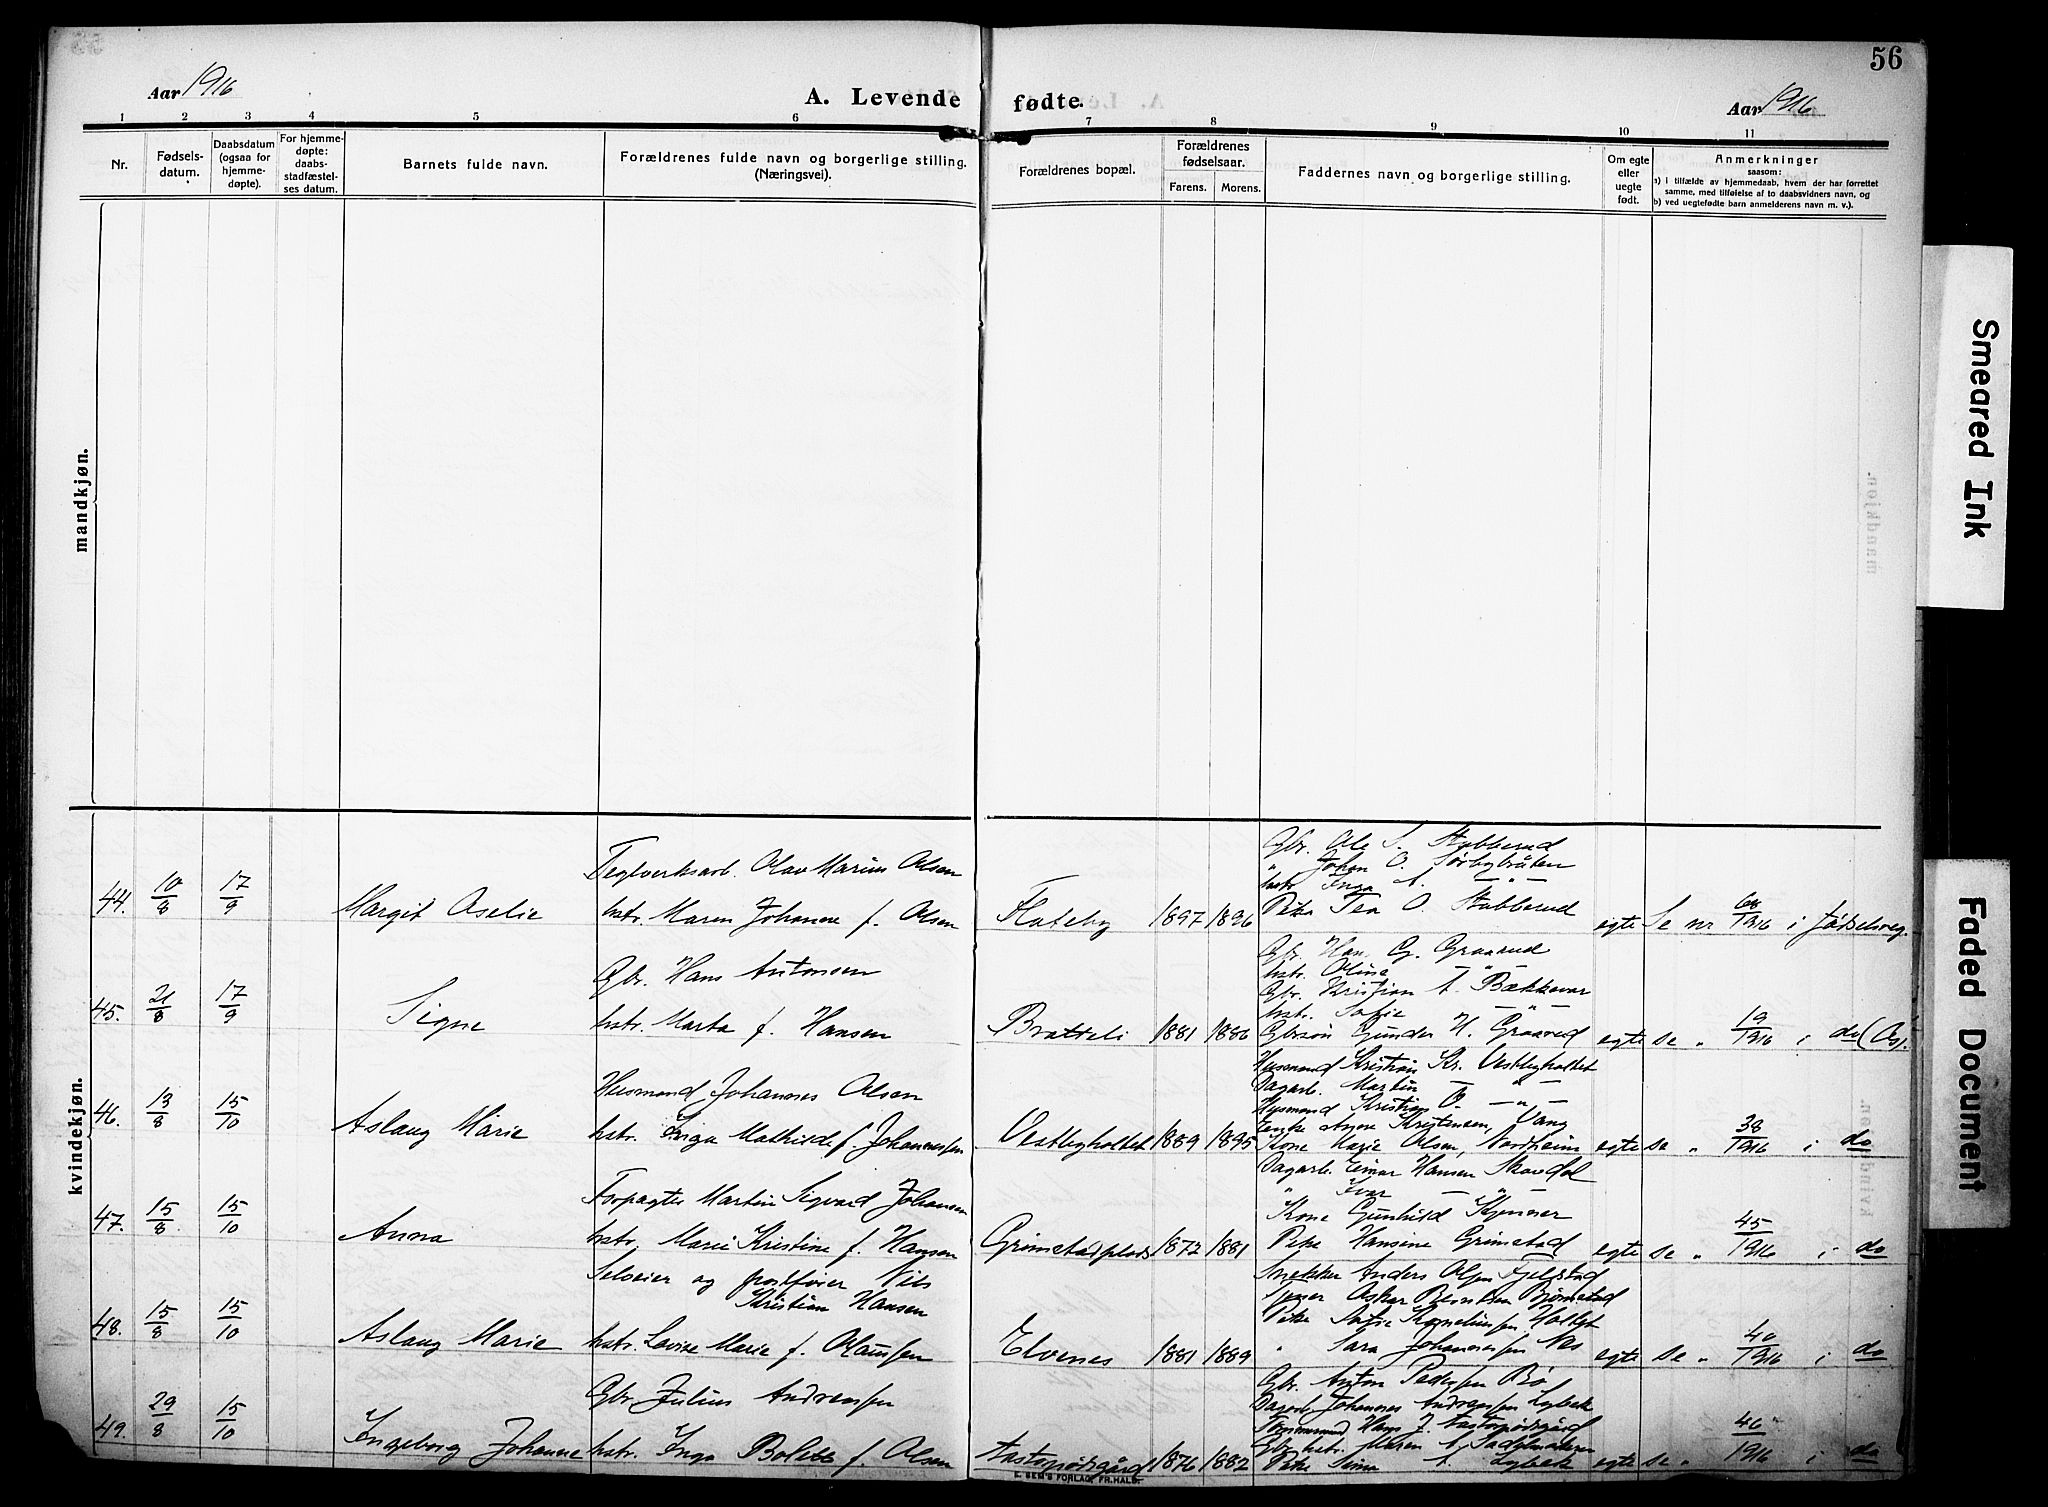 56
Aar 1916
A. Levende fødte.
Aar 1916
1 2 3 4 5 6 7 8 9 10 11
Nr.
Fødsels-
datum.
Daabsdatum
(ogsaa for
hjemme-
døpte).
For hjemme-
døpte:
daabs-
stadfæstel-
ses datum.
Barnets fulde navn.
Forældrenes fulde navn og borgerlige stilling.
(Næringsvei).
Forældrenes bopæl.
Forældrenes
fødselsaar.
Farens. Morens.
Faddernes navn og borgerlige stilling.
Om egte
eller
uegte
født.
Anmerkninger
saasom:
a) i tilfælde av hjemmedaab, hvem der har forrettet
samme, med tilføielse af to daabsvidners navn, og
b) ved uegtefødte barn anmelderens navn m. v.).
mandkjøn.
kvindekjøn.
44. 10/8 17/9
Margit Aselie
Teglverksarb. Olav Marius Olsen
hstr. Maren Johanne f. Olsen
Flateby 1897 1896
Gbr. Ole S. Stubberud
" Johan O. Sørbybråten
hstr. Inga A. — " —
Pike Tea O. Stubberud
egte Se nr 68/1916 i fødselsreg.
45. 21/8 17/9
Signe
Gbr. Hans Antonsen
hstr. Marta f. Hansen
Bratteli 1881 1886
Gbr. Han. G. Graarud
hstr. Olina — " —
Gbr. Kristian A. Bækkevar
hstr. Sofie — " —
Gbrsøn Gunder H. Graarud
egte se " 19/1916 i do (As).
46. 13/8 15/10
Aslaug Marie
Husmand Johannes Olsen
hstr. Inga Mathilde f. Johannessen
Vestbyholtet 1889 1895
Husmand Kristian Kr. Vestbyholtet
Dagarb. Martin — " —
Husmand Kristian O. — " —
Enke Anne Kristansen, Vang
Kone Marie Olsen, Nordheim
egte se " 38/1916 i do
47. 15/8 15/10
Anna
Forpagter Martin Sigvard Johansen
hstr. Marie Kristine f. Hansen
Grimstadplads 1872 1881
Dagarb. Einar Hansen Skovdal
" Ivar — " —
Kone Gunhild Kynner
Pike Hansine Grimstad
egte se " 45/1916 i do
48. 15/8 15/10
Aslaug Marie
Selveier og postfører Nils
Kristian Hansen
hstr. Lovise Marie f. Olaussen
Elvenes 1881 1889
Snekker Anders Olsen Fjelstad
Oskar Berntsen Bjørnstad
Pike Sofie Kornelinssen Holtet
" Sara Johannessen Nes
egte se " 40/1916 i do
49. 29/8 15/10
Ingeborg Johanne
Gbr. Julius Andreassen
hstr. Inga Bolette f. Olsen
1876 1882
Gbr. Anton Pedersen Bø
Dagarb. Johannes Andreassen Lybæk
Tømmermand Hans J.
Gbr. hstr. Maren A.
Pike Signe A. Lybæk
egte se " 46/1916 i do
E. SEM'S FORLAG, FR.HALD.
Smeared Ink
Faded Document